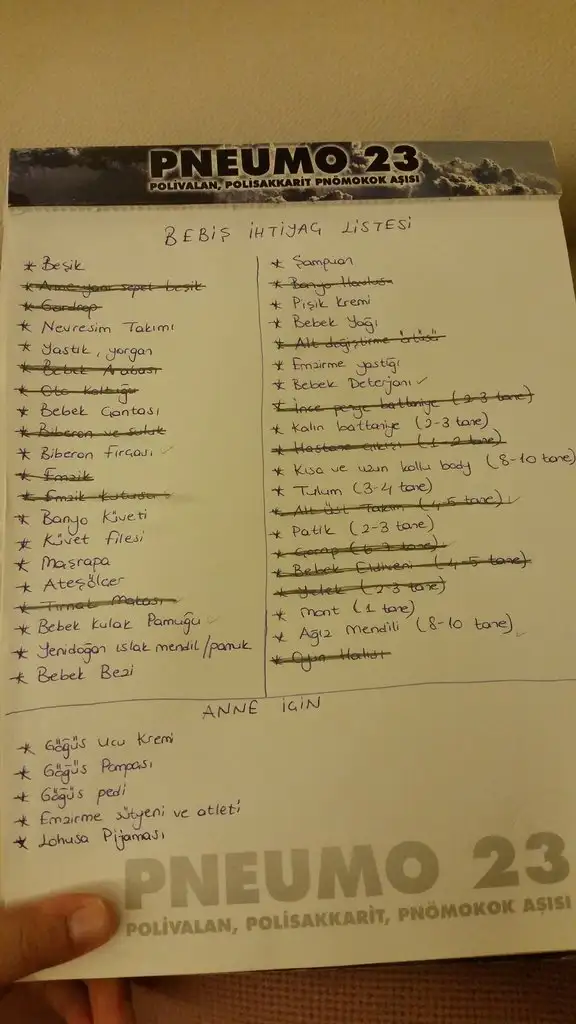 PNEUMO 23
POLİVALAN, POLİSAKKARİT PNÖMOKOK AŞISI
BEBİŞ İHTİYAÇ LİSTESİ
* Beşik
* Anne yanı sepet beşik
* Gardrop
* Nevresim Takımı
* Yastık, yorgan
* Bebek Arabası
* Oto Koltuğu
* Bebek Çantası
* Biberon ve suluk
* Biberon fırçası ✓
* Emzik
* Emzik Kutusu
* Banyo Küveti
* Küvet filesi
* Maşrapa
* Ateşölçer
* Tırnak Makası
* Bebek Kulak Pamuğu ✓
* Yenidoğan ıslak mendil/pamuk
* Bebek Bezi
* Şampuan
* Banyo Havlusu
* Pişik Kremi
* Bebek Yağı
* Alt değiştirme örtüsü
* Emzirme yastığı
* Bebek Deterjanı ✓
* İnce penye battaniye (2-3 tane)
* Kalın battaniye (2-3 tane)
* Hastane çıkışı (1-2 tane)
* Kısa ve uzun kollu body (8-10 tane)
* Tulum (3-4 tane)
* Alt Üst Takım (4-5 tane) ✓
* Patik (2-3 tane)
* Çorap (6-7 tane)
* Bebek Eldiveni (4-5 tane)
* Yelek (2-3 tane)
* Mont (1 tane)
* Ağız Mendili (8-10 tane) ✓
* Oyun Halısı
ANNE İÇİN
* Göğüs Ucu Kremi
* Göğüs Pompası
* Göğüs pedi
* Emzirme sütyeni ve atleti
* Lohusa Pijaması
PNEUMO 23
POLİVALAN, POLİSAKKARİT, PNÖMOKOK AŞISI